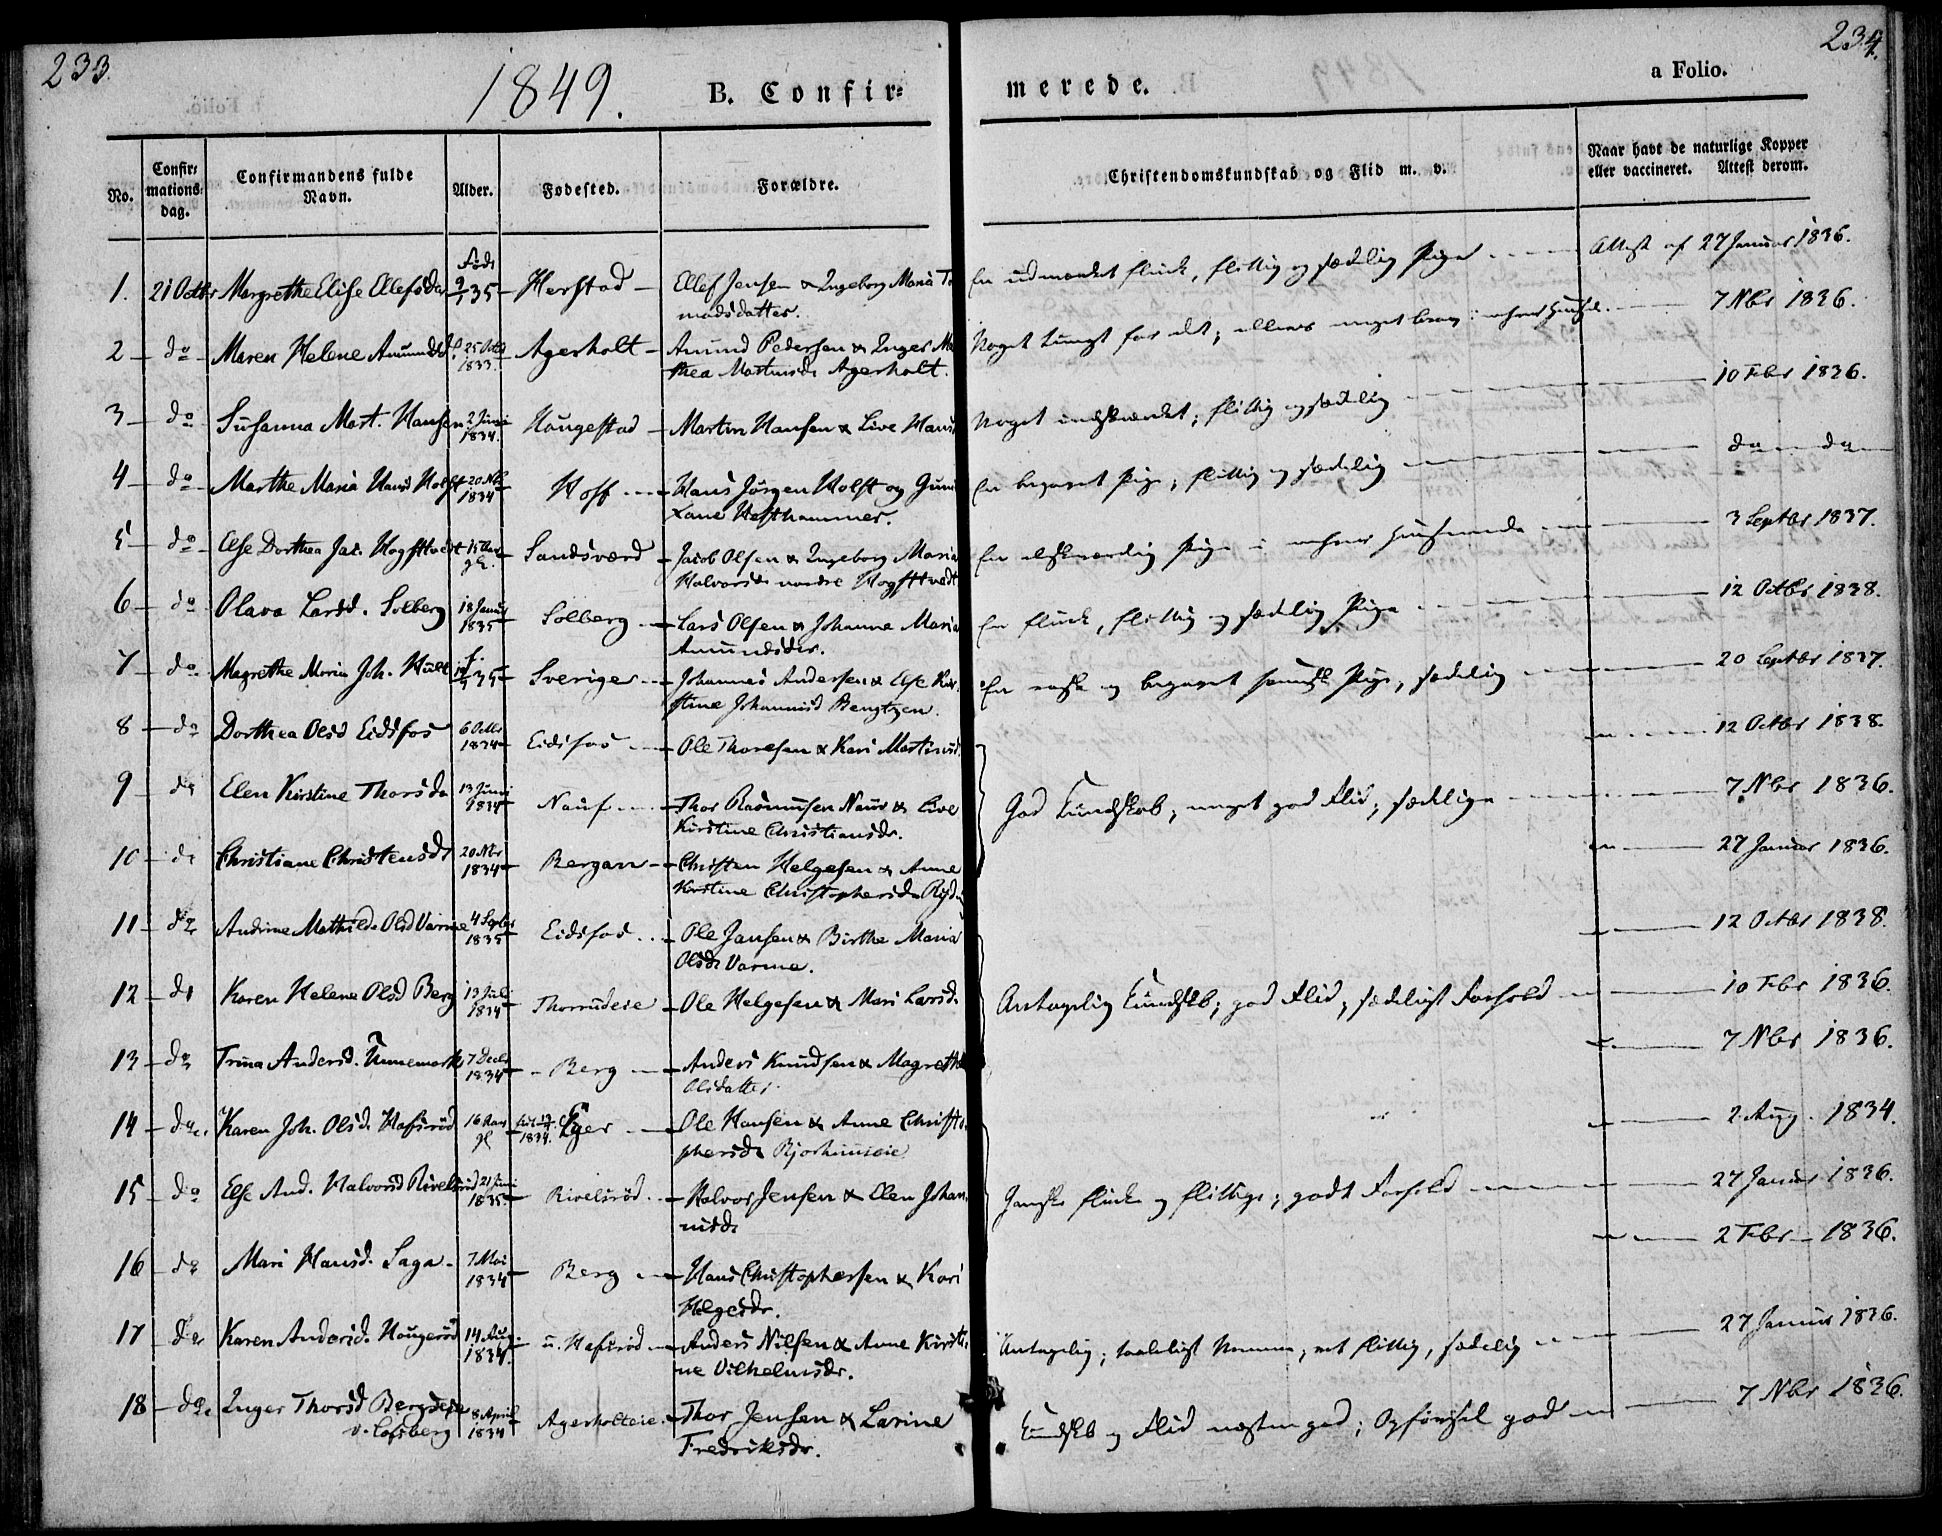 233.
1849.
B. Confir=
merede.
a Folio.
234.
No.
Confir=
mations=
dag.
Confirmandens fulde
Navn.
Alder.
Fødested.
Forældre.
Christendomskundskab og Flid m. v.
Naar havt de naturlige Kopper
eller vaccineret. Attest derom.
1. 21 Octbr Margrethe Elise Ellefsdr Født 9/1 35 – Herstad – Ellef Jensen & Ingeborg Maria To
madsdatter.
En udmærket flink, flittig og sædelig Pige Attest af 27 Januar 1836.
2 – do – Maren Helene Amundsd. 25 Octb 1833. Agerholt – Amund Pedersen & Inger Ma
thea Martinsdr Agerholt.
Noget tungt for det; ellers meget brav 7 Nbr 1836.
3 – do Susanna Mart. Hansen 2 Juni 1834. Haugestad – Martin Hansen & Live Hansd
Noget indskrænket; flittig og sædelig 10 Febr 1836.
4 – do – Marthe Maria Hansd Holst 20 Nbr 1834 Hoff – Hans Jörgen Holst og Guni
Lane Hesthammer.
En begavet Pige, flittig og sædelig do do
5 – do – Else Dorthea Jac. Hogstvedt 15 Aar gl. Sandsværd – Jacob Olsen & Ingeborg Maria
Halvorsdr nordre Hogstvedt
En elskværdig Pige i enhver Henseende 3 Septbr 1837.
6 – do Olava Larsd. Solberg 18 Januar 1835 Solberg – Lars Olsen & Johanne Maria
Amundsdr.
En flink, flittig og sædelig Pige 12 Octbr 1838.
7 – do Magrethe Maria Joh. Hult 35 Sverige – Johannes Andersen & Else Kir
stine Johannisd Bengtzen.
En rask og begavet svensk Pige, sædelig 20 Septbr 1837.
8 – do Dorthea Olsd Eidsfos 6 Octbr 1834 Eidsfos – Ole Thoresen & Kari Martinsd.
12 Octbr 1838.
9 do Elen Kirstine Thorsdr 13 Juni 1834 Nauf – Thor Rasmusen Nauf & Live
Kirstine Christiansdr.
God Kundskab; meget god Flid; sædelige 7 Nbr 1836.
10 – do Christiane Christensdr 20 Nbr 1834 Bergan – Christen Helgesen & Anne
Kirstine Christophersdr
27 Januar 1836.
11 – do Andrine Mathilde Olsd Varme 4 Septbr 1835 Eidsfos – Ole Jansen & Birthe Maria
Olsdr Varme.
12 Octbr 1838.
12 – do Karen Helene Olsd Berg 13 Juli 1834 Thorrudeie – Ole Helgesen & Mari Larsd.
Antagelig Kundskb; god Flid; sædeligt Forhold 10 Febr 1836.
13 – do Trina Andersd. Unnemark 7 Decbr 1834 Berg – Anders Knudsen & Magrethe
Olsdatter
7 Nbr 1836.
14 – do. Karen Joh. Olsd. Hafsröd 16 Aar gl 1834. Eger – Ole Hansen & Anne Christo
phersdr
2. Aug. 1834.
15 – do Else And. Halvorsd Rivelsröd 21 Juni 1835 Rivelsröd – Halvor Jensen & Elen Johan
nisdr
Ganske flinke og flittige; godt Forhold 27 Januar 1836.
16 – do Mari Hansd. Saga – 7 Mai 1834 Berg – Hans Christophersen & Kari
Helgesdr.
2 Febr – 1836.
17 – do Karen Andersd. Haugeröd 14 Aug. 1834. n. Hafsröd – Anders Nilsen & Anne Kirsti
ne Vilhelmsdr.
Antagelig; taaleligt Nemme, ret flittig, sædelig 27 Januar 1836.
18 – do Inger Thorsd Bergseie 8 April 1834 Agerholteie – Thor Jensen & Larine
v. Cofsberg
Fredriksdr.
Kundskb og Flid næsten god; Opførsel god 7 Nbr 1836.